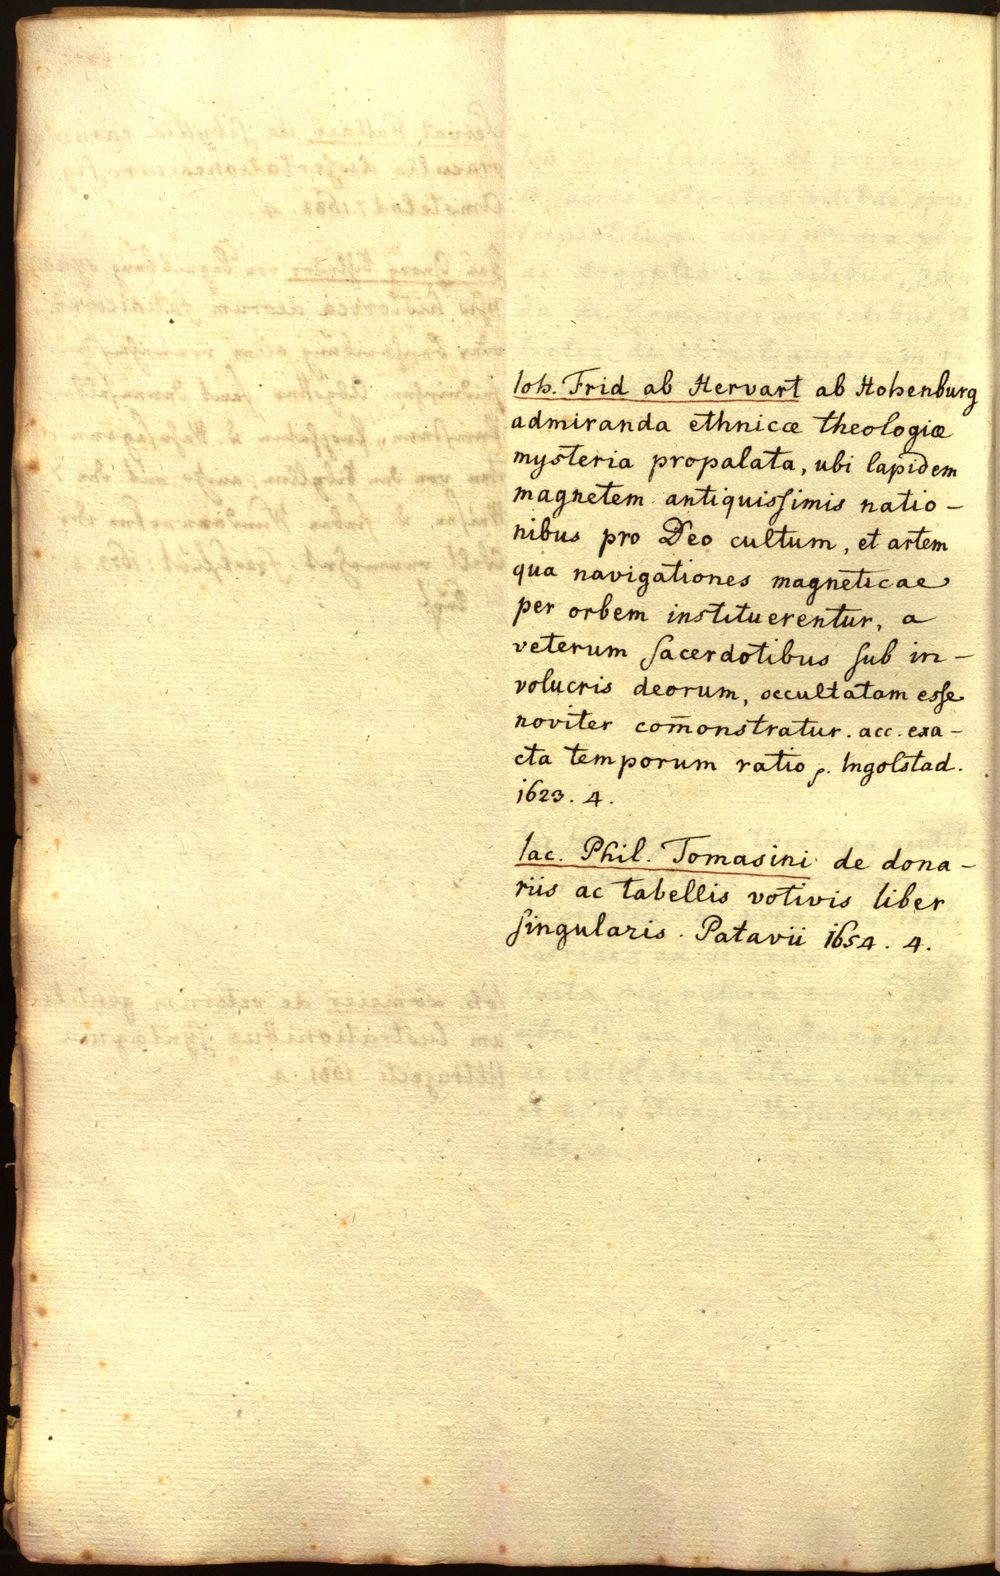 Ioh. Frid ab Hervart ab Hohenburg
admiranda ethnicæ theologiæ
mysteria propalata, ubi lapidem
magnetem antiquisſimis natio-
nibus pro Deo cultum, et artem
qua navigationes magneticae
per orbem instituerentur, a
veterum ſacerdotibus ſub in-
volucris deorum, occultatam eſse
noviter com̄onstratur. acc. exa-
cta temporum ratio p. Ingolstad.
1623. 4.
Iac. Phil. Tomasini de dona-
riis ac tabellis votivis liber
ſingularis. Patavii 1654. 4.